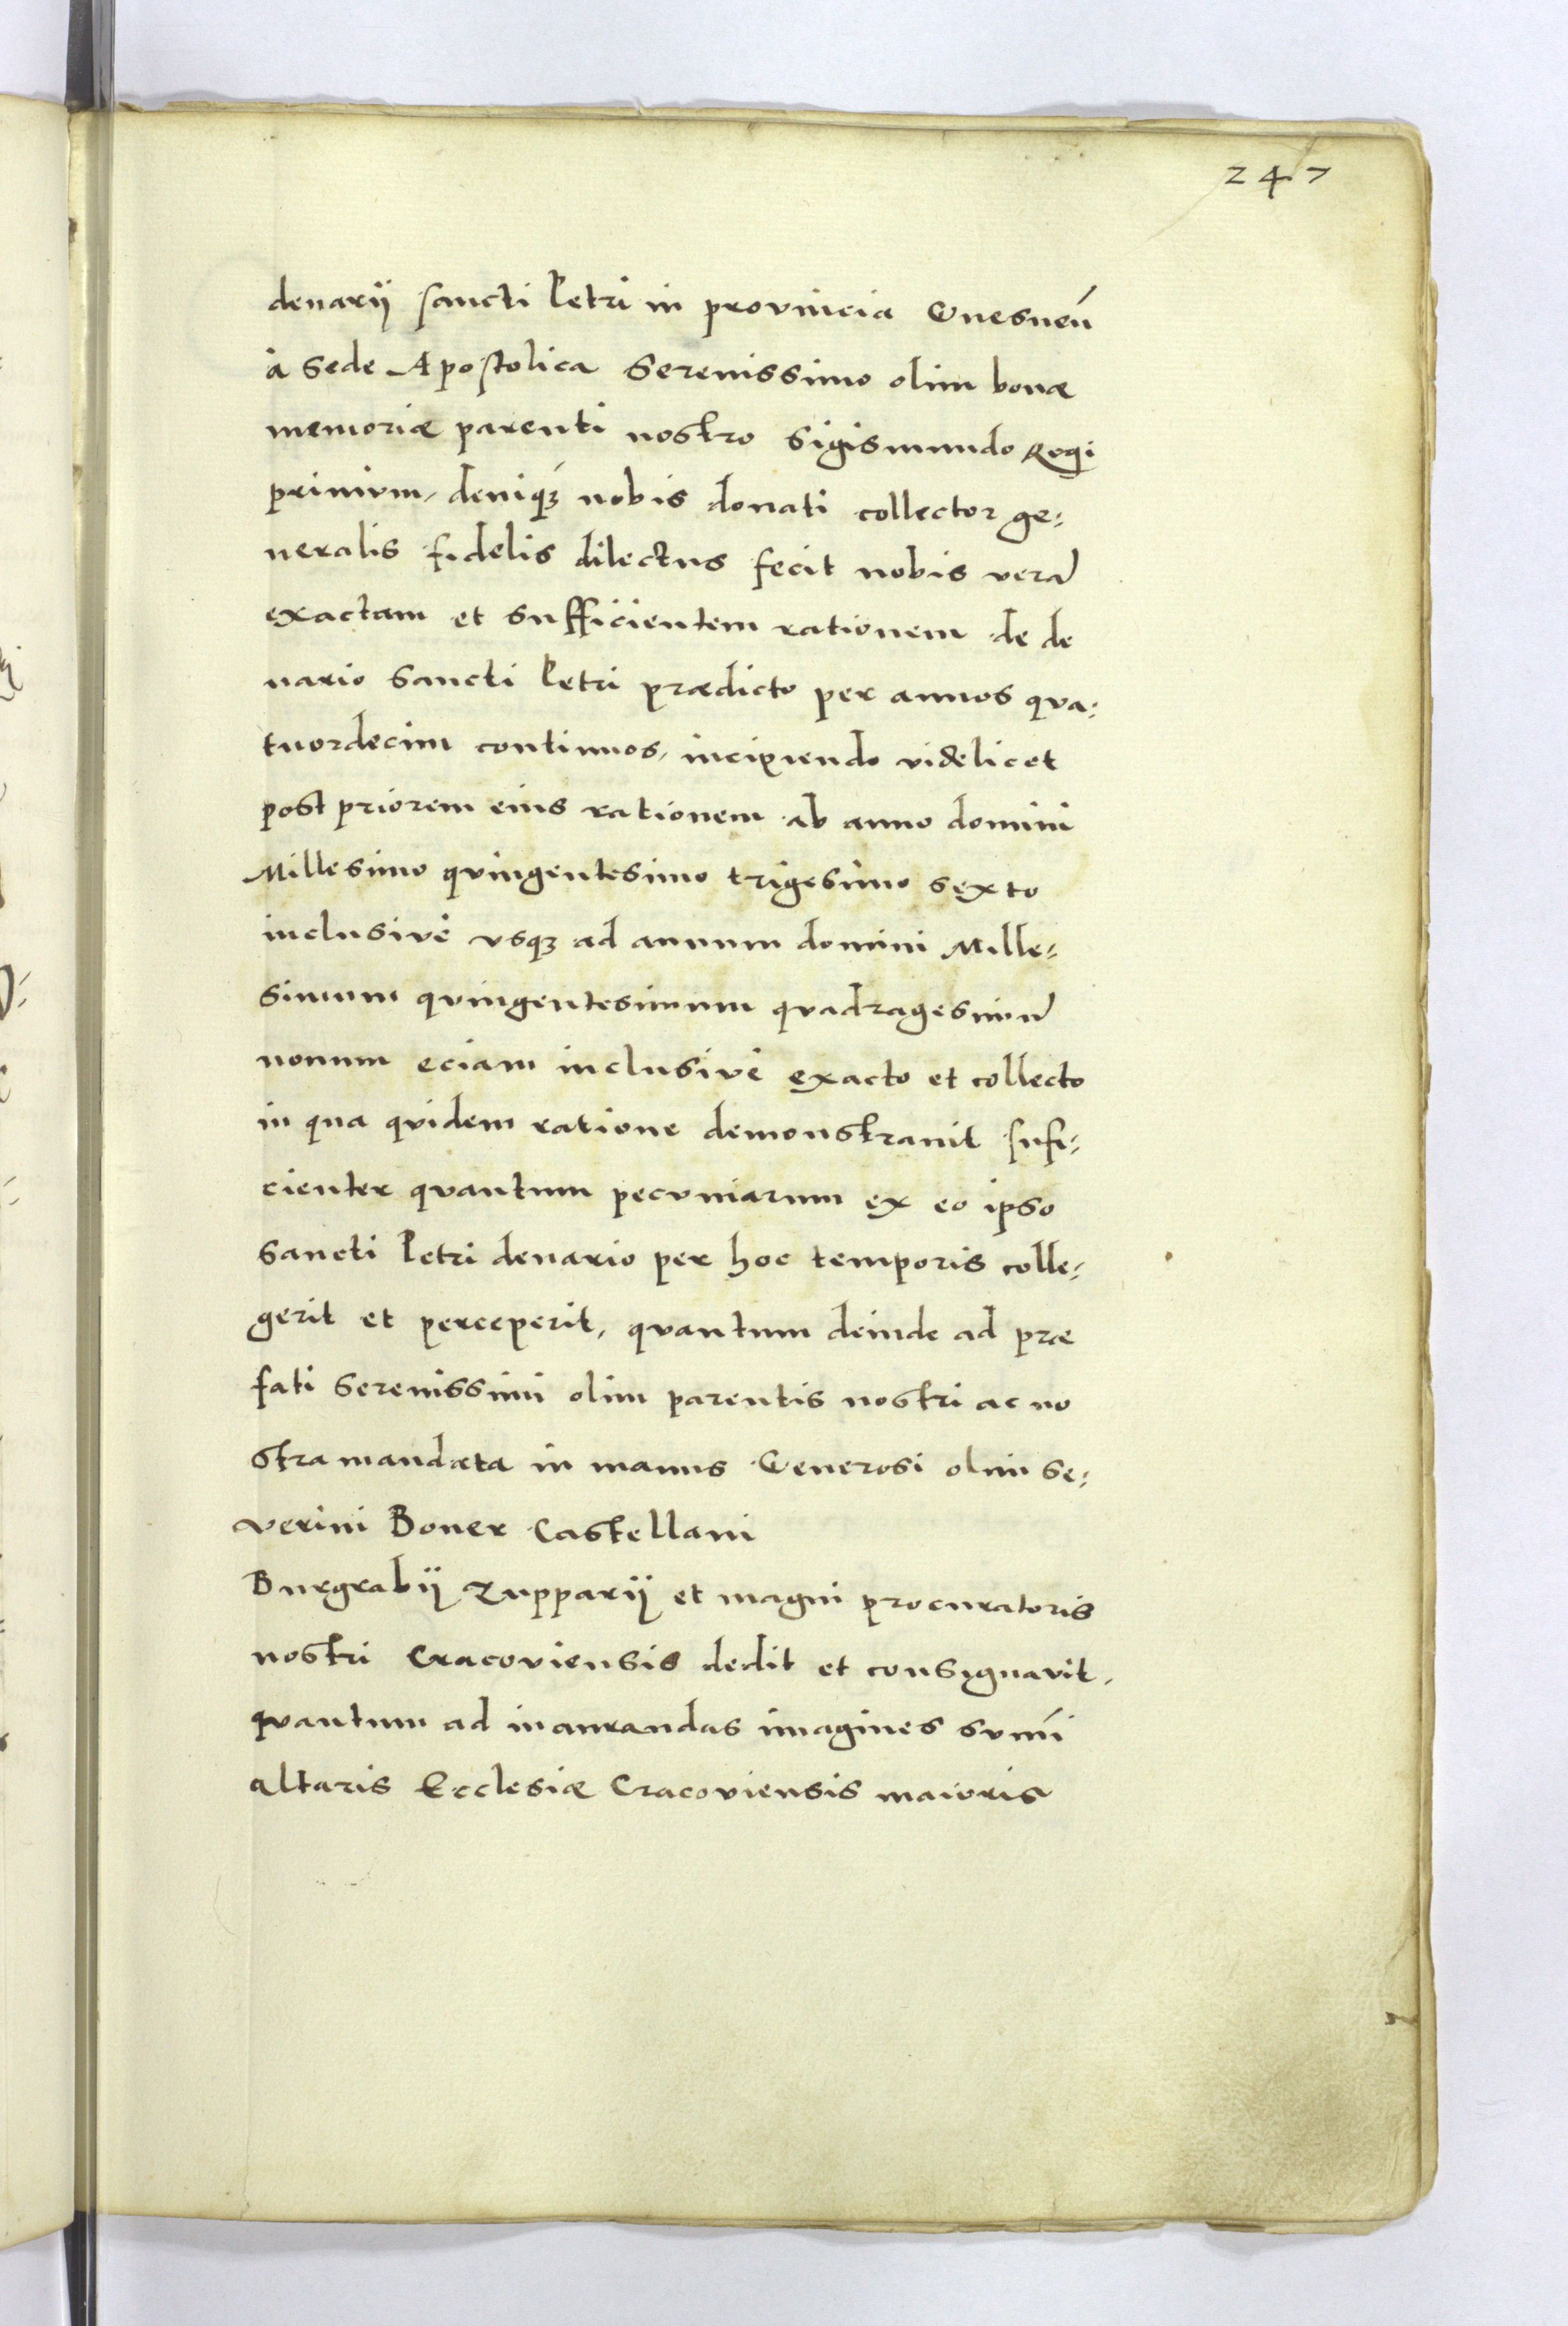 247
denarij sancti Petri in provincia Gnesnen̄
à Sede Apostolica Serenissimo olim bonæ
memoriæ parenti nostro Sigismundo Regi
primum, deniqꝫ nobis donati collector ge:
neralis fidelis dilectus fecit nobis verā
exactam et sufficientem rationem de de
nario Sancti Petri prædicto per annos qva:
tuordecim continuos, incipiendo videlicet
post priorem eius rationem ab anno domini
Millesimo qvingentesimo trigesimo sexto
inclusivè vsqꝫ ad annum domini Mille:
simum qvingentesimum qvadragesimū
nonum eciam inclusivè exacto et collecto
in qua qvidem ratione demonstrauit sufi:
cienter qvantum pecuniarum ex eo ipso
Sancti Petri denario per hoc temporis colle:
gerit et perceperit, qvantum deinde ad præ
fati Serenissimi olim parentis nostri ac no
stra mandata in manus Generosi olim Se:
verini Boner Castellani
Burgrabij Zupparij et magni procuratoris
nostri Cracoviensis dedit et consignavit,
qvantum ad inaurandas imagines sum̄i
altaris Ecclesiæ Cracoviensis maioris